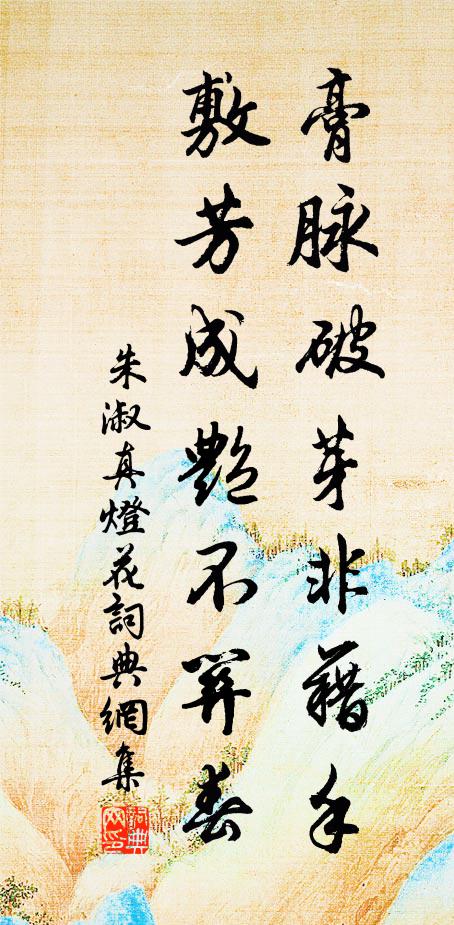 膏脉破芽非藉手
敷芳成艷不關春
朱淑真燈花詞典網集
詞典网印